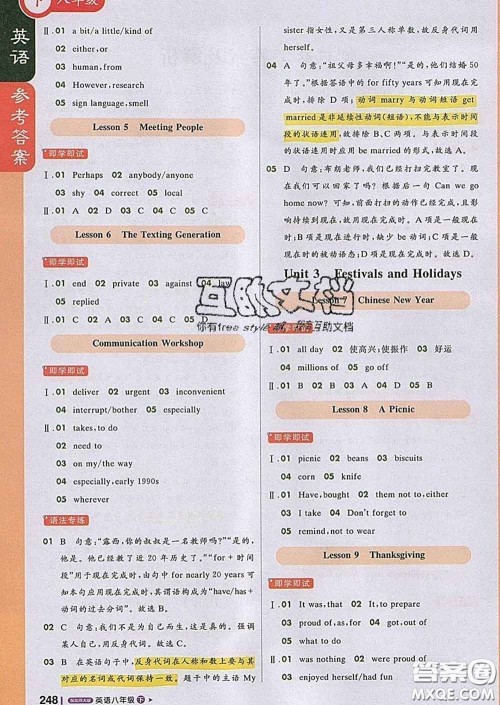 下 八年级
英语
参考答案
Ⅱ. 01 a bit/a little/kind of
02 either, or
03 human, from
04 However, research
05 sign language, smell
Lesson 5 Meeting People
即学即试
Ⅰ. 01 Perhaps 02 anybody/anyone
03 shy 04 correct 05 local
Ⅱ. 01 A 02 D 03 C 04 C 05 C
Lesson 6 The Texting Generation
即学即试
Ⅰ. 01 end 02 private 03 against 04 law
05 replied
Ⅱ. 01 C 02 A 03 C 04 C 05 D
Communication Workshop
即学即试
Ⅰ. 01 deliver 02 urgent 03 inconvenient
04 interrupt/bother 05 especially
Ⅱ. 01 takes, to do
02 need to
03 on my/the way
04 especially, early 1990s
05 wherever
语法专练
01 B 句意:“露西,你的叔叔是一名教师吗?”“是的,
他是。他在这里教了近 20 年历史了。”“for + 时间
段”用于现在完成时,由 for nearly 20 years 可
知本句为现在完成时,其谓语构成为“have/has+
动词的过去分词”。故选 B。
02 C 句意:我们不是为自己而生。强调是某人自
己,用反身代词。故选 C。
03 B 在英语句子中,反身代词在人称和数上要与其
对应的名词或代词保持一致。题干中的主语 My
248 英语八年级 下
sister 指女性,又是第三人称单数,故反身代词用
herself。
04 A 句意:“祖父母多幸福啊!”“是的,他们结婚 50
年了。”根据答语中的 for fifty years 可知用现在完成
时,排除 D 项;动词 marry 与动词短语 get
married 是非延续性动词(短语),不能与表示时间
段的状语连用,故排除 B、C 两项;与表示时间段的
状语连用时应用 be married,故选 A。
05 D 句意:布朗老师,我们已经打扫了教室。现在
我们可以回家了吗?根据后一句 Can we go
home now? 可知,前面打扫的动作已经完成,且强
调对现在的影响,故用现在完成时。A 项是一般
现在时,B 项是现在进行时,缺少 be 动词;C 项是一
般过去时。故选 D。
Unit 3 Festivals and Holidays
Lesson 7 Chinese New Year
即学即试
Ⅰ. 01 all day 02 使高兴;使振作 03 好运
04 millions of 05 go off
Lesson 8 A Picnic
即学即试
Ⅰ. 01 picnic 02 beans 03 biscuits
04 corn 05 knife
Ⅱ. 01 Have, bought 02 them, have
03 I take 04 Don't forget to
05 remind, not to wear
Lesson 9 Thanksgiving
即学即试
Ⅰ. 01 It was, that 02 It, to prepare
03 proud of, as 04 for, got out of
05 himself, were proud
Ⅱ. 01 found it, to
02 have, been there
03 have finished
互助文档
你有free style 嘛,来互助文档
答案圈
MXQE.COM